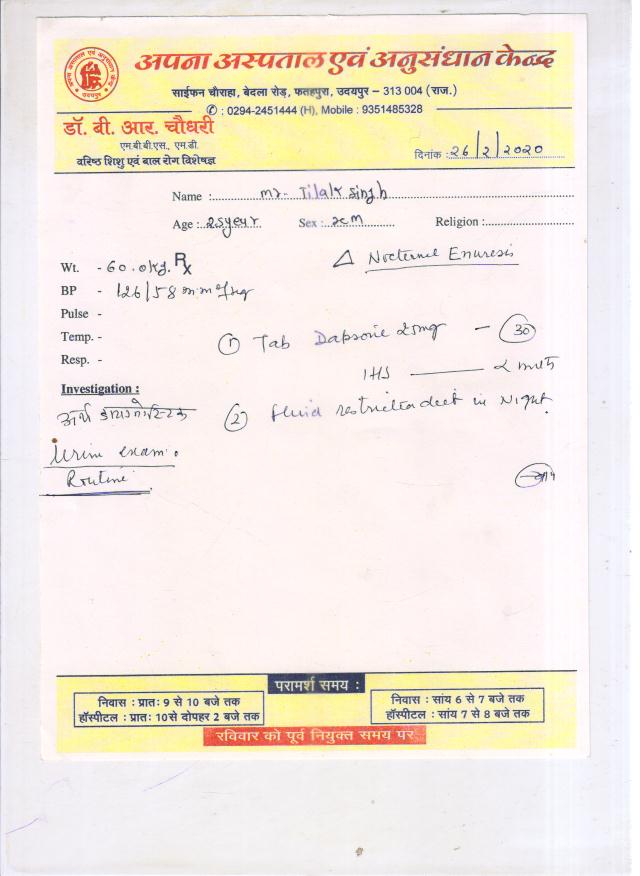 अपना अस्पताल एवं अनुसंधान केन्द्र
साईफन चौराहा, बेदला रोड़, फतहपुरा, उदयपुर – 313 004 (राज.)
✆ : 0294-2451444 (H), Mobile : 9351485328
डॉ. बी. आर. चौधरी
एम.बी.बी.एस., एम.डी.
वरिष्ठ शिशु एवं बाल रोग विशेषज्ञ
दिनांक : 26/2/2020
Name : Mr. Tilak Singh
Age : 25 year Sex : M Religion :
Δ Nocternel Enuresis
Wt. - 60.0kg. Rx
BP - 126/58 mm of Hg
Pulse -
Temp. -
① Tab 25mg — 30
Resp. -
1HS —
Investigation :
अर्थ डायग्नोस्टिक
② fluid in Night
Urine exam.
Routine
परामर्श समय :
निवास : प्रातः 9 से 10 बजे तक
हॉस्पीटल : प्रातः 10 से दोपहर 2 बजे तक
निवास : सांय 6 से 7 बजे तक
हॉस्पीटल : सांय 7 से 8 बजे तक
रविवार को पूर्व नियुक्त समय पर